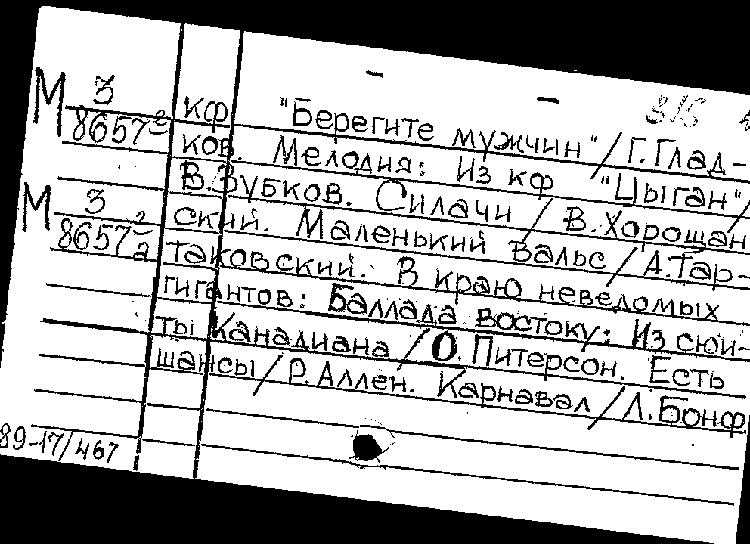 - -
М 3 кф "Берегите мужчин"/Г.Глад-
8657 ков. Мелодия: Из кф "Цыган"/
В.Зубков. Силачи/В.Хорощан
М 3 ский. Маленький вальс/А.Тар-
8657 2/а таковский. В краю неведомых
гигантов: Баллада востоку: Из сюи-
ты Канадиана/О.Питерсон. Есть
шансы/Р.Аллен. Карнавал/Л.Бонф
89-17/467